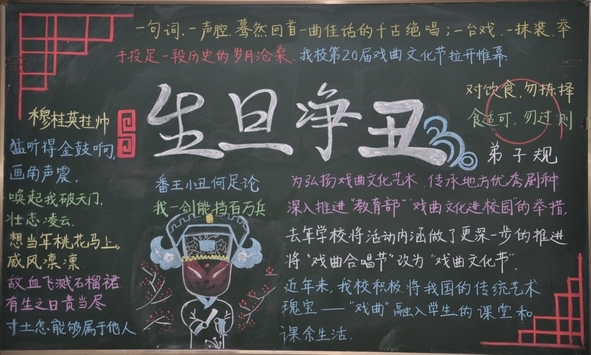 一句词,一声腔,蓦然回首一曲佳话的千古绝唱;一台戏,一抹装,举
手投足一段历史的岁月沧桑,我校第20届戏曲文化节拉开帷幕.
生旦净丑
对饮食,勿拣择
食适可,勿过则
弟子规
穆桂英挂帅
猛听得金鼓响,
画角声震,
唤起我破天门,
壮志凌云.
想当年桃花马上,
威风凛凛
敌血飞溅石榴裙
有生之日责当尽
寸土怎能够属于他人
番王小丑何足论
我一剑能挡百万兵
为弘扬戏曲文化艺术,传承地方优秀剧种
深入推进"教育部"戏曲文化进校园的举措,
去年学校将活动内涵做了更深一步的推进
将"戏曲合唱节"改为"戏曲文化节".
近年来,我校积极将我国的传统艺术
瑰宝——"戏曲"融入学生的课堂和
课余生活.